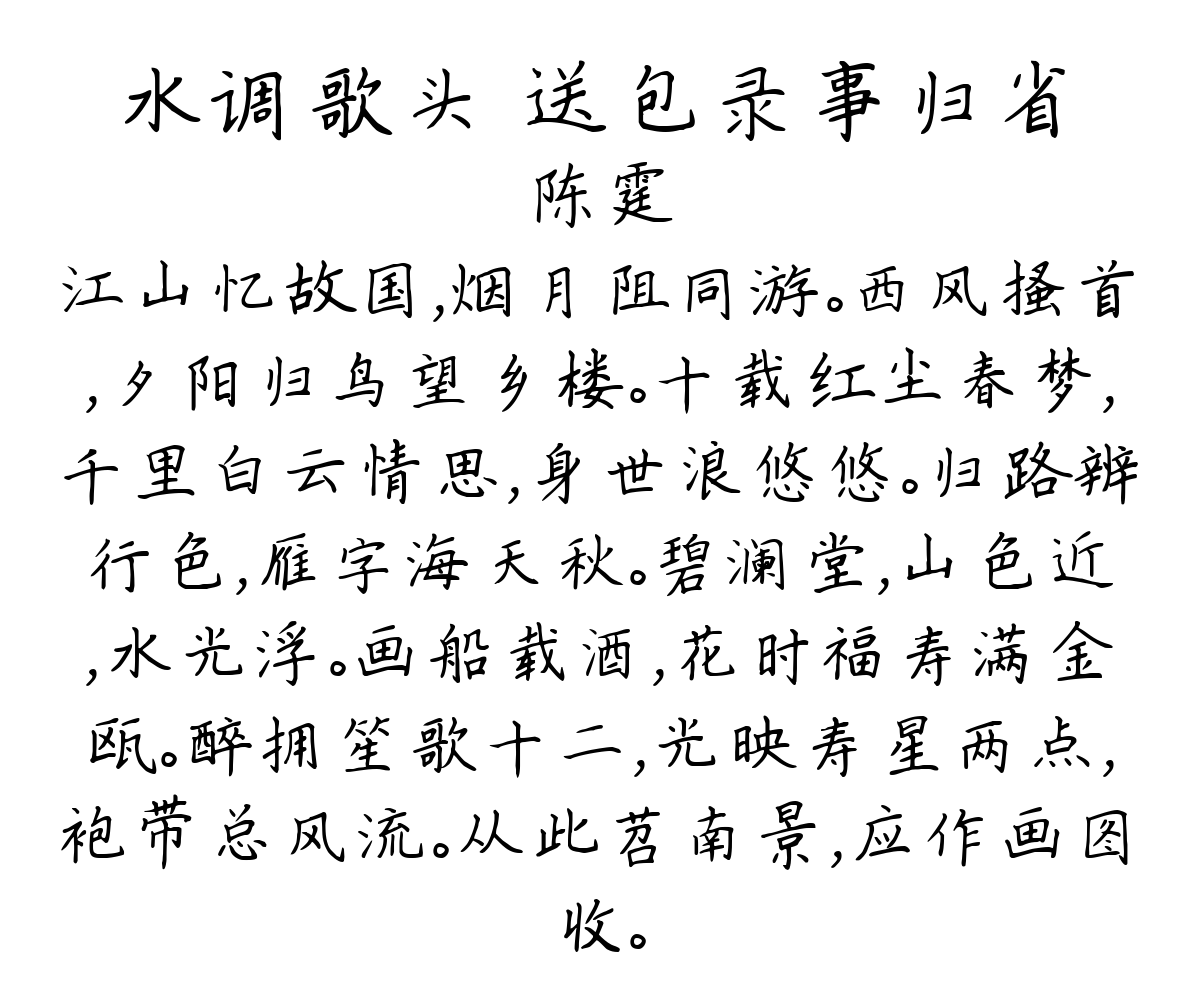 水调歌头 送包录事归省
陈霆
江山忆故国,烟月阻同游。西风搔首
,夕阳归鸟望乡楼。十载红尘春梦,
千里白云情思,身世浪悠悠。归路辨
行色,雁字海天秋。碧澜堂,山色近
,水光浮。画船载酒,花时福寿满金
瓯。醉拥笙歌十二,光映寿星两点,
袍带总风流。从此苕南景,应作画图
收。